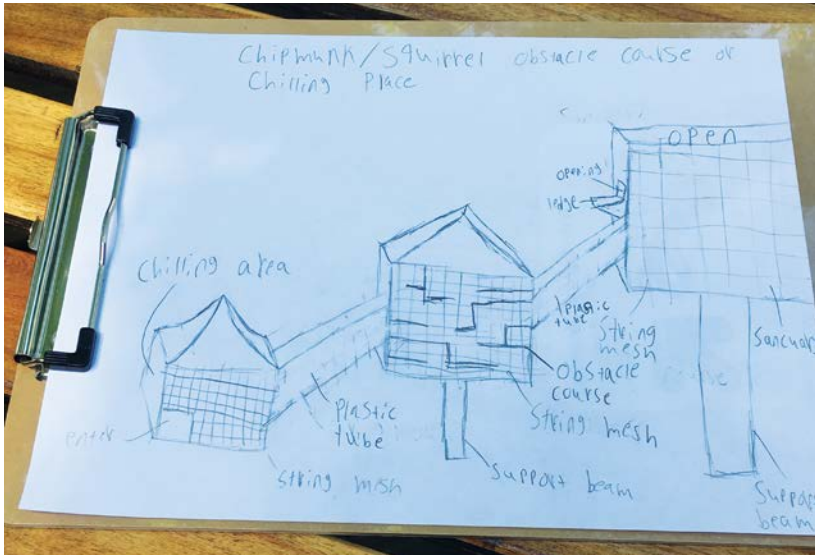 Chipmunk/Squirrel obstacle course or
Chilling Place
open
opening
ledge
Chilling area
Plastic
tube
String
mesh
Sanctuary
obstacle
course
String mesh
Plastic
tube
enter
String mesh
Support beam
Support
beam